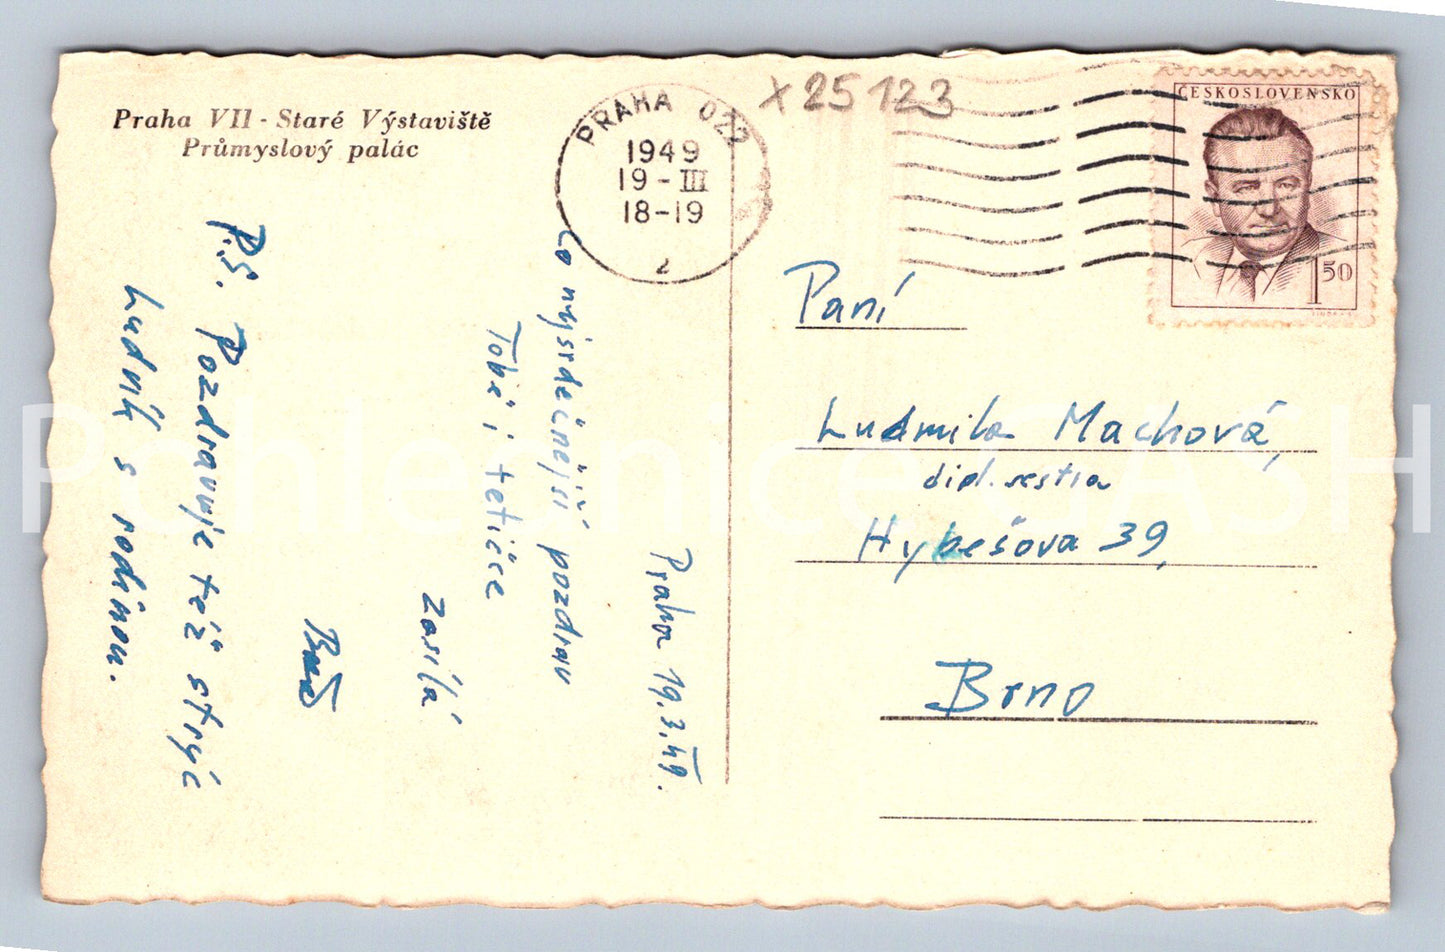 Praha VII - Staré Výstaviště
Průmyslový palác
PRAHA 022
1949
19-III
18-19
2
x 25 123
ČESKOSLOVENSKO
1 50
Praha 19.3.49.
Co nejsrdečnejší pozdrav
Tobě i tetičce
zasílá
P.S. Pozdravuje též strýc
Ludvík s rodinou.
Paní
Ludmila Machová,
dipl. sestra
Hybešova 39,
Brno
Pohlednice GASH